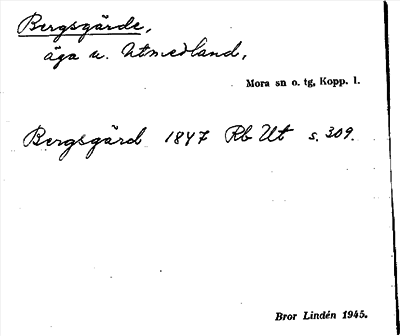 Bergsgärde,
äga u. Utmedland,
Mora sn o. tg, Kopp. l.
Bergsgärd 1847 Rb Ut s. 309.
Bror Lindén 1945.